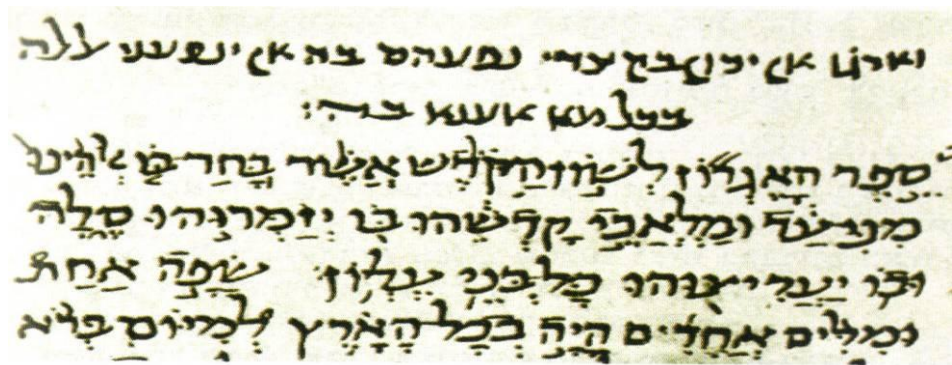 וארגו אן יכון בקצדי נפעהם בה אן ינפעני אללה
בכל מא אענא בה:
ספר האגרון לשון הקדש אשר בחר בה אלהינו
מני עד ומלאכי קדשהו בו יזמרוהו סלה
ובו יעריצוהו כל בני עליון שפה אחת
ומלים אחדים היה בכל הארץ למיום ברא